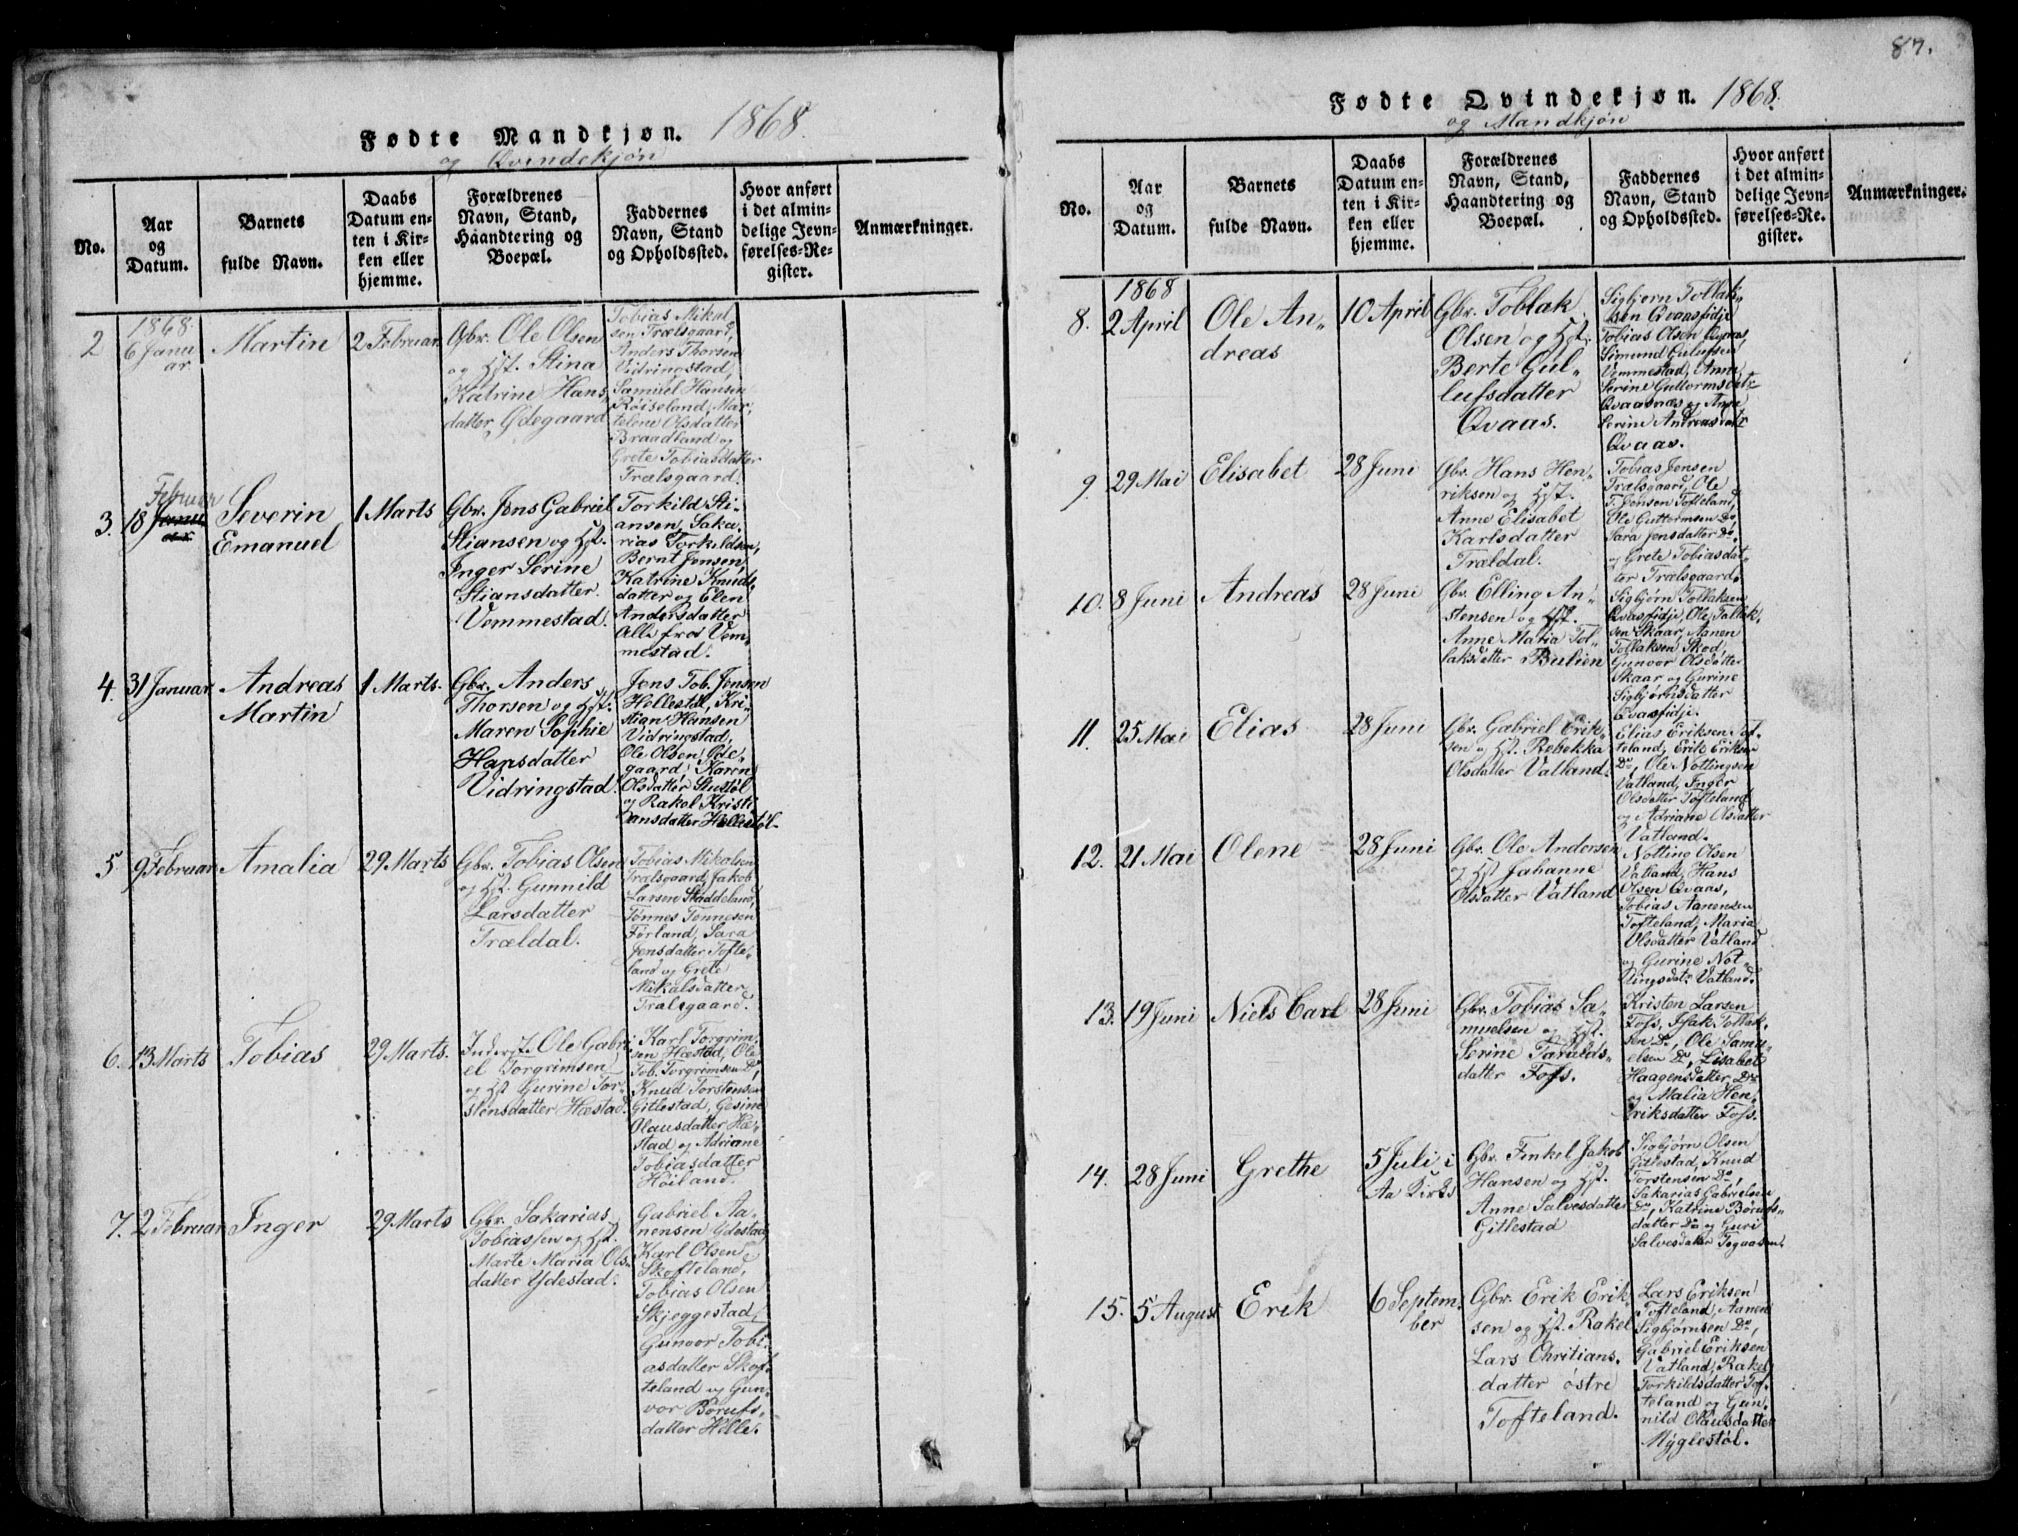 Fødte Mandkjøn. 1868.
og Qvindekjøn
No.
Aar
og
Datum.
Barnets
fulde Navn.
Daabs
Datum en-
ten i Kir-
ken eller
hjemme.
Forældrenes
Navn, Stand,
Haandtering og
Boepæl.
Faddernes
Navn, Stand
og Opholdssted.
Hvor anført
i det almin-
delige Jevn-
førelses-Re-
gister.
Anmærkninger.
2
1868.
6 Janu
ar
Martin
2 Februar.
Gbr. Ole Olsen
og Hst. Stina
Katrine Hans,
datter Ødegaard
Tobias Mikal
sen Trælsgaard,
Anders Thorsen
Vidringstad,
Samuel Hansen
Røiseland, Mar,
telene Olsdatter
Braadland og
Grete Tobiasdatter
Trælsgaard.
3.
Februar
18
Severin
Emanuel
1 Marts
Gbr. Jens Gabriel
Stiansen og Hst.
Inger Serine
Stiansdatter
Vemmestad.
Torkild Sti-
ansen, Saka,
rias Torkildsen,
Bernt Jensen,
Katrine Knuds
datter og Elen
Andersdatter
Alle fra Vem-
mestad.
4.
31 Januar
Andreas
Martin
1 Marts.
Gbr. Anders
Thorsen og Hst.
Maren Sophie
Hansdatter
Vidringstad.
Jens Tob. Jensen
Hellestøl, Kri-
stian Hansen
Vidringstad,
Ole Olsen Øde-
gaard, Karen
Olsdatter Stustøl
og Rakel Kristi
ansdatter Hellestøl.
5
9 Februar
Amalia
29 Marts
Gbr. Tobias Olsen
og Hst. Gunnild
Larsdatter
Trældal.
Tobias Mikalsen
Trælsgaard, Jakob
Larsen Staddeland,
Tønnes Tønnesen
Førland, Sara
Jensdatter Tofte-
land og Grete
Mikalsdatter
Trælsgaard.
6.
13 Marts
Tobias
29 Marts.
Inderst. Ole Gabri
el Torgrimsen
og Hst Gurine Tor-
stensdatter Hæstad.
Karl Torgrim-
sen Hæstad, Ole
Tob. Torgrimsen Do,
Knud Torstensen
Gitlestad, Gesine
Olausdatter Hæ-
stad og Adriane
Tobiasdatter
Høiland.
7.
2 Februar
Inger
29 Marts
Gbr. Sakarias
Tobiassen og Hst.
Marte Maria Ols-
datter Ydestad.
Gabriel Aa-
nensen Ydestad,
Karl Olsen
Skofteland,
Tobias Olsen
Skjeggestad,
Gunvor Tobi-
asdatter Skof
teland og Gun-
vor Børufs-
datter Helle.
87.
Fødte Qvindekjøn. 1868.
og Mandkjøn
No.
Aar
og
Datum.
Barnets
fulde Navn.
Daabs
Datum en-
ten i Kir-
ken eller
hjemme.
Forældrenes
Navn, Stand,
Haandtering og
Boepæl.
Faddernes
Navn, Stand
og Opholdssted.
Hvor anført
i det almin-
delige Jevn-
førelses-Re-
gister.
Anmærkninger.
8.
1868
2 April
Ole An-
dreas
10 April
Gbr. Tollak
Olsen og Hst.
Berte Gul-
lufsdatter
Qvaas.
Sigbjørn Tollak-
sen Qvaasfidje
Tobias Olsen Qvaas,
Simund Gulufsen
Vemmestad, Anne
Serine Guttormsdatr
Qvaasnæs og Ane
Serine Andreasdatr
Qvaas.
9
29 Mai
Elisabet
28 Juni
Gbr. Hans Hen-
riksen og Hst.
Anne Elisabet
Karlsdatter
Trældal.
Tobias Jensen
Trælsgaard, Ole
T. Jensen Tofteland,
Ole Guttormsen Do,
Sara Jensdatter Do
og Grete Tobiasdat-
ter Trælsgaard.
10.
8 Juni
Andreas
28 Juni
Gbr. Elling An-
stensen og Hst.
Anne Maria Tol-
laksdatter Bulien
Sigbjørn Tollaksen
Qvasfidje, Ole Tallak,
sen Skaar, Aanen
Tollaksen Skod,
Gunvor Olsdatter
Skaar og Gurine
Sigbjørnsdatter
Qvasfidje.
11.
25 Mai
Elias
28 Juni
Gbr. Gabriel Erik-
sen og Hst. Rebekka
Olsdatter Vatland.
Elias Eriksen Tof-
teland, Erik Eriksen
Do, Ole Nottingsen
Vatland, Inger
Olsdatter Tofteland
og Adriane Olsdatter
Vatland.
12.
21 Mai
Olene
28 Juni
Gbr. Ole Andersen
og Hst Jahanne
Olsdatter Vatland
Notting Olsen
Vatland, Hans
Olsen Qvaas,
Tobias Aanensen
Tofteland, Maria
Olsdatter Vatland
og Gurine Not-
tingsdatr Vatland.
13.
19 Juni
Niels Carl
28 Juni
Gbr. Tobias Sa-
muelsen og Hst.
Serine Taralds-
datter Foss.
Kristen Larsen
Foss, Isak Tollak-
sen Do, Ole Samu-
elsen Do, Lisabet
Haagensdatter Do
og Malia Hen-
riksdatter Foss.
14.
28 Juni
Grethe
5 Juli i
Aa Kirke
Gbr. Fenkel Jakob
Hansen og Hst.
Anne Salvesdatter
Gitlestad
Sigbjørn Olsen
Gitlestad, Knud
Torstensen Do,
Sakarias Gabrielsen
Do, Katrine Børufs-
datter Do og Guri
Salvesdatter Togaasen.
15.
5 August
Erik
6 Septem-
ber
Gbr. Erik Erik-
sen og Hst. Rakel
Lars Chritians,
datter østre
Tofteland.
Lars Eriksen
Tofteland, Aanen
Sigbjørnsen Do,
Gabriel Eriksen
Vatland, Rakel
Torkildsdatter Tof-
teland og Gun-
nild Olausdatter
Myglestøl.